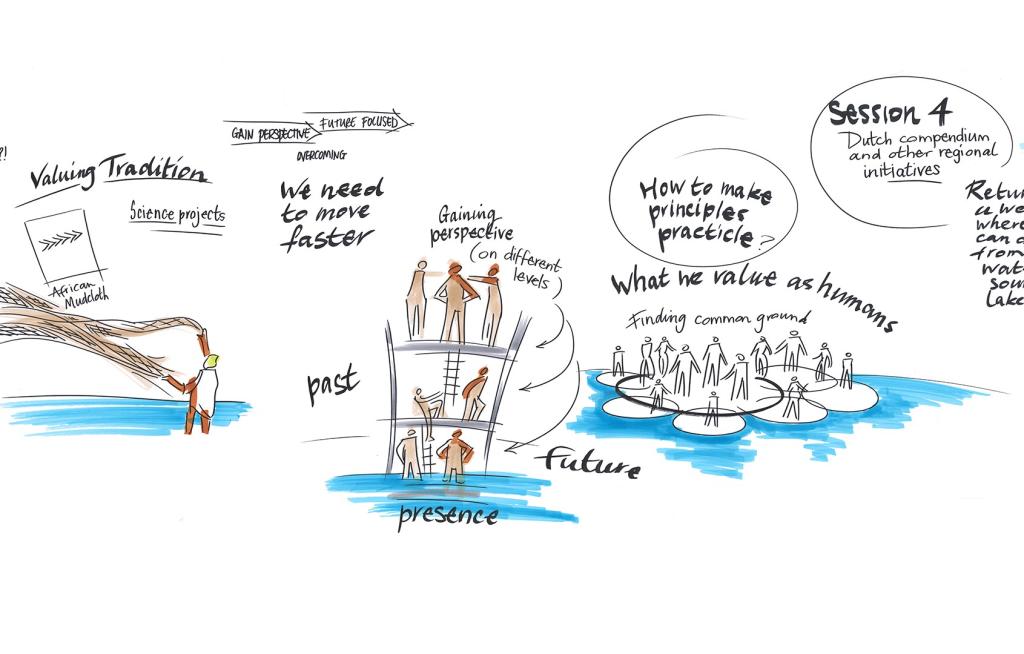 ?!
Valuing Tradition
Science projects
African
Mudcloth
GAIN PERSPECTIVE
FUTURE FOCUSED
OVERCOMING
We need
to move
faster
Gaining
perspective
(on different
levels)
past
presence
Future
How to make
principles
practicle?
What we value as humans
Finding common ground
Session 4
Dutch compendium
and other regional
initiatives
Retur
a we
where
can d
from
wat
sou
lake